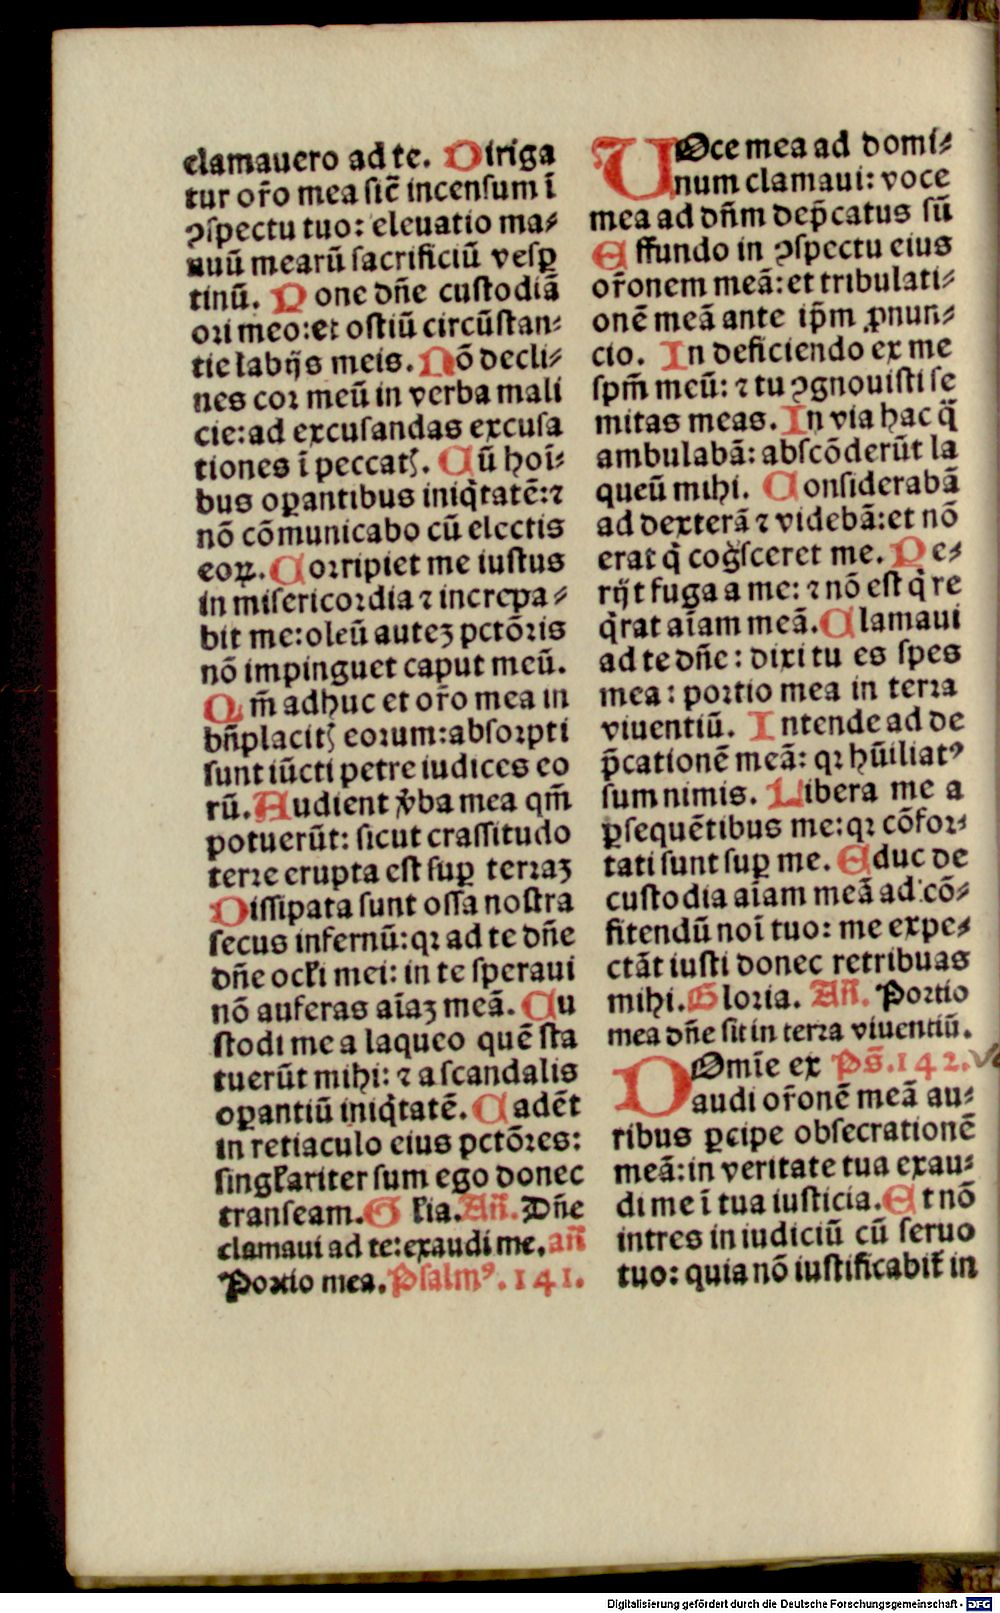 clamauero ad te. Diriga
tur or̃o mea sic̃ incensum ī
ꝯspectu tuo: eleuatio ma⸗
nuū mearū sacrificiū vesꝑ
tinū. Pone dñe custodiā
ori meo: et ostiū circūstan⸗
tie labijs meis. Nō decli⸗
nes cor meū in verba mali
cie: ad excusandas excusa
tiones ī peccatꝭ. Cū hoī⸗
bus oꝑantibus iniq̇tatē: ⁊
nō cōmunicabo cū electis
eoꝝ. Corripiet me iustus
in misericordia ⁊ increpa⸗
bit me: oleū auteꝫ pctōris
nō impinguet caput meū.
Qm̄ adhuc et or̃o mea in
bn̄placitꝭ eorum: absorpti
sunt iūcti petre iudices eo
rū. Audient v̾ba mea qm̄
potuerūt: sicut crassitudo
terre erupta est suꝑ terraꝫ
Dissipata sunt ossa nostra
secus infernū: qꝛ ad te dñe
dñe ocl̕i mei: in te speraui
nō auferas aīaꝫ meā. Cu
stodi me a laqueo quē sta
tuerūt mihi: ⁊ a scandalis
oꝑantiū iniq̇tatē. Cadēt
in retiaculo eius pctōres:
singl̕ariter sum ego donec
transeam. Gl̕ia. Añ. Dñe
clamaui ad te: exaudi me. añ
Portio mea. Psalmꝰ. 141.
UOce mea ad domi⸗
num clamaui: voce
mea ad dñm dep̄catus sū
Effundo in ꝯspectu eius
or̃onem meā: et tribulati⸗
onē meā ante ip̄m ꝓnun⸗
cio. In deficiendo ex me
spm̄ meū: ⁊ tu ꝯgnouisti se
mitas meas. In via hac q̄
ambulabā: abscōderūt la
queū mihi. Considerabā
ad dexterā ⁊ videbā: et nō
erat q̇ cog̃sceret me. Pe⸗
rijt fuga a me: ⁊ nō est q̇ re
q̇rat aīam meā. Clamaui
ad te dñe: dixi tu es spes
mea: portio mea in terra
viuentiū. Intende ad de
p̄cationē meā: qꝛ hūiliatꝰ
sum nimis. Libera me a
ꝑsequētibus me: qꝛ cōfor⸗
tati sunt suꝑ me. Educ de
custodia aīam meā ad cō⸗
fitendū noī tuo: me expe⸗
ctāt iusti donec retribuas
mihi. Gloria. Añ. Portio
mea dñe sit in terra viuentiū.
DOmīe ex Ps̄. 142.
audi or̃onē meā au⸗
ribus ꝑcipe obsecrationē
meā: in veritate tua exau⸗
di me ī tua iusticia. Et nō
intres in iudiciū cū seruo
tuo: quia nō iustificabit̕ in
Digitalisierung gefördert durch die Deutsche Forschungsgemeinschaft - DFG